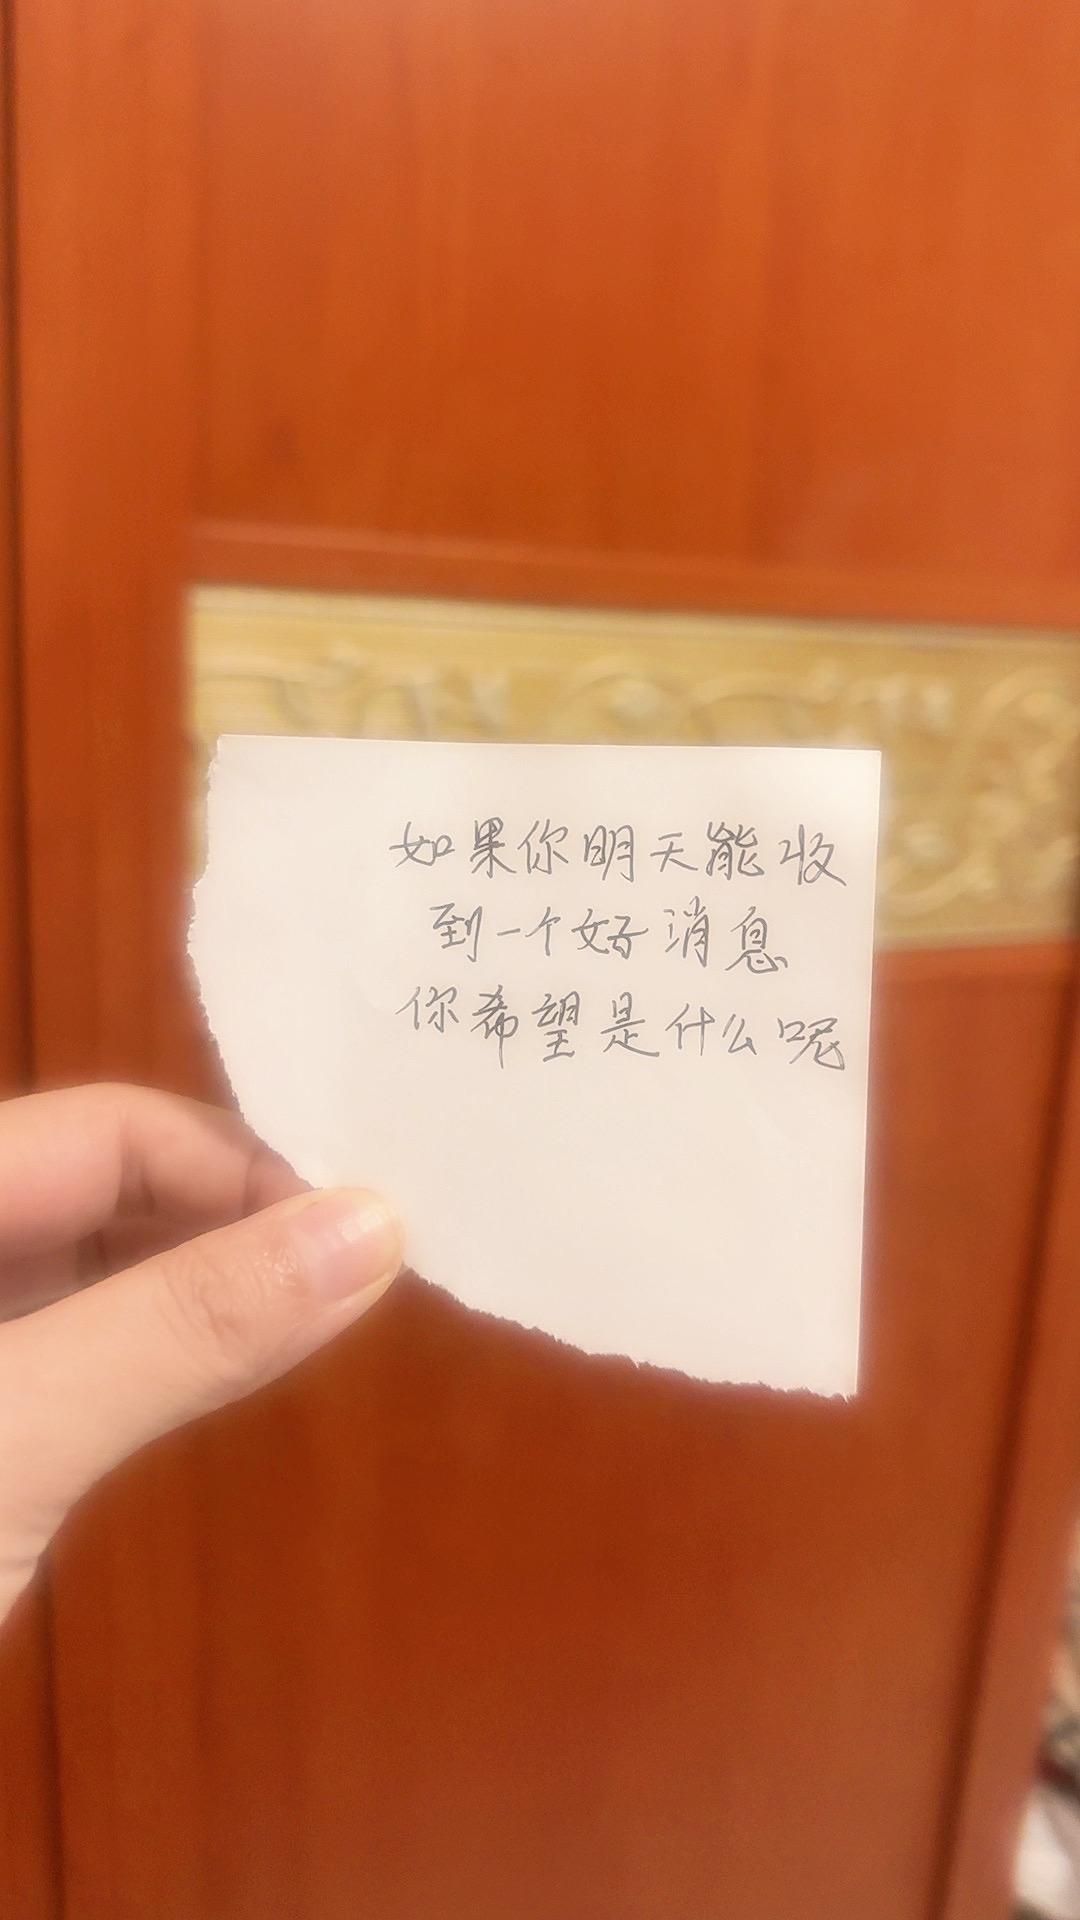 如果你明天能收
到一个好消息
你希望是什么呢